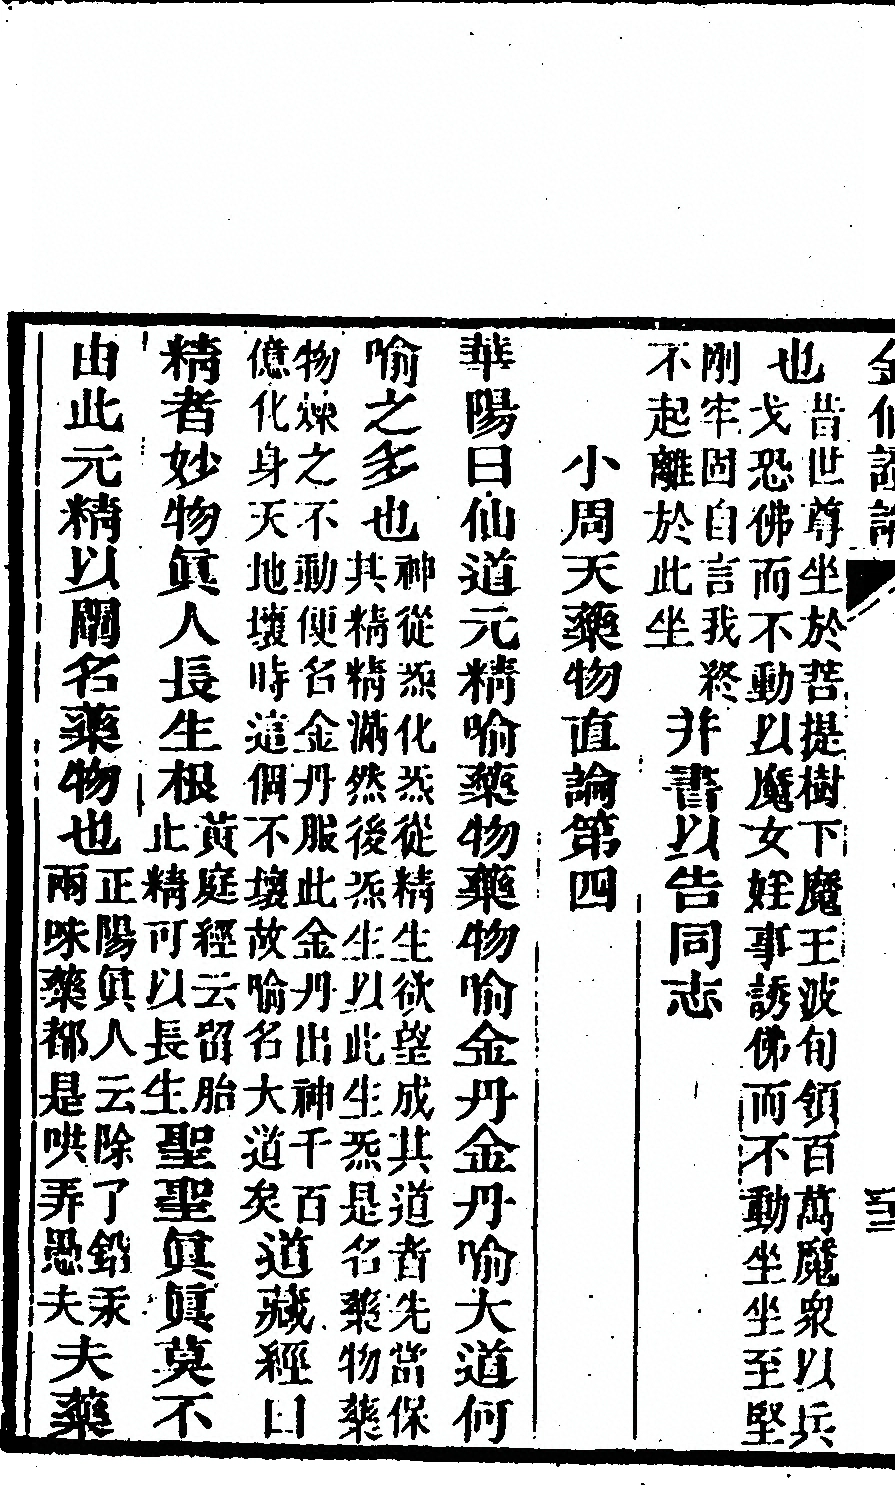 金仙證論
也昔世尊坐於菩提樹下魔王波旬領百萬魔衆以兵
戈恐佛而不動以魔女婬事誘佛而不動坐坐至堅
剛牢固自言我終
不起離於此坐
并書以告同志
小周天藥物直論第四
華陽曰仙道元精喻藥物藥物喻金丹金丹喻大道何
喻之多也
神從炁化炁從精生欲望成其道者先當保
其精精滿然後炁生以此生炁是名藥物藥
物煉之不動便名金丹服此金丹出神千百
億化身天地壞時這個不壞故喻名大道矣
道藏經曰
精者妙物眞人長生根
黃庭經云留胎
止精可以長生
聖聖眞眞莫不
由此元精以闡名藥物也
正陽眞人云除了鉛汞
兩味藥都是哄弄愚夫
夫藥